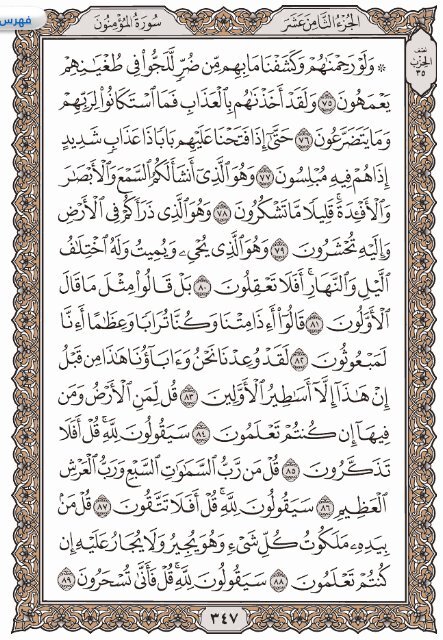 فهرس
الجزء الثامن عشر
سورة المؤمنون
نصف
الحزب
٣٥
۞ وَلَوْ رَحِمْنَٰهُمْ وَكَشَفْنَا مَا بِهِم مِّن ضُرٍّ لَّلَجُّوا۟ فِى طُغْيَٰنِهِمْ
يَعْمَهُونَ ٧٥ وَلَقَدْ أَخَذْنَٰهُم بِٱلْعَذَابِ فَمَا ٱسْتَكَانُوا۟ لِرَبِّهِمْ
وَمَا يَتَضَرَّعُونَ ٧٦ حَتَّىٰٓ إِذَا فَتَحْنَا عَلَيْهِم بَابًا ذَا عَذَابٍ شَدِيدٍ
إِذَا هُمْ فِيهِ مُبْلِسُونَ ٧٧ وَهُوَ ٱلَّذِىٓ أَنشَأَ لَكُمُ ٱلسَّمْعَ وَٱلْأَبْصَٰرَ
وَٱلْأَفْـِٔدَةَ ۚ قَلِيلًا مَّا تَشْكُرُونَ ٧٨ وَهُوَ ٱلَّذِى ذَرَأَكُمْ فِى ٱلْأَرْضِ
وَإِلَيْهِ تُحْشَرُونَ ٧٩ وَهُوَ ٱلَّذِى يُحْىِۦ وَيُمِيتُ وَلَهُ ٱخْتِلَٰفُ
ٱلَّيْلِ وَٱلنَّهَارِ ۚ أَفَلَا تَعْقِلُونَ ٨٠ بَلْ قَالُوا۟ مِثْلَ مَا قَالَ
ٱلْأَوَّلُونَ ٨١ قَالُوٓا۟ أَءِذَا مِتْنَا وَكُنَّا تُرَابًا وَعِظَٰمًا أَءِنَّا
لَمَبْعُوثُونَ ٨٢ لَقَدْ وُعِدْنَا نَحْنُ وَءَابَآؤُنَا هَٰذَا مِن قَبْلُ
إِنْ هَٰذَآ إِلَّآ أَسَٰطِيرُ ٱلْأَوَّلِينَ ٨٣ قُل لِّمَنِ ٱلْأَرْضُ وَمَن
فِيهَآ إِن كُنتُمْ تَعْلَمُونَ ٨٤ سَيَقُولُونَ لِلَّهِ ۚ قُلْ أَفَلَا
تَذَكَّرُونَ ٨٥ قُلْ مَن رَّبُّ ٱلسَّمَٰوَٰتِ ٱلسَّبْعِ وَرَبُّ ٱلْعَرْشِ
ٱلْعَظِيمِ ٨٦ سَيَقُولُونَ لِلَّهِ ۚ قُلْ أَفَلَا تَتَّقُونَ ٨٧ قُلْ مَنۢ
بِيَدِهِۦ مَلَكُوتُ كُلِّ شَىْءٍ وَهُوَ يُجِيرُ وَلَا يُجَارُ عَلَيْهِ إِن
كُنتُمْ تَعْلَمُونَ ٨٨ سَيَقُولُونَ لِلَّهِ ۚ قُلْ فَأَنَّىٰ تُسْحَرُونَ ٨٩
٣٤٧